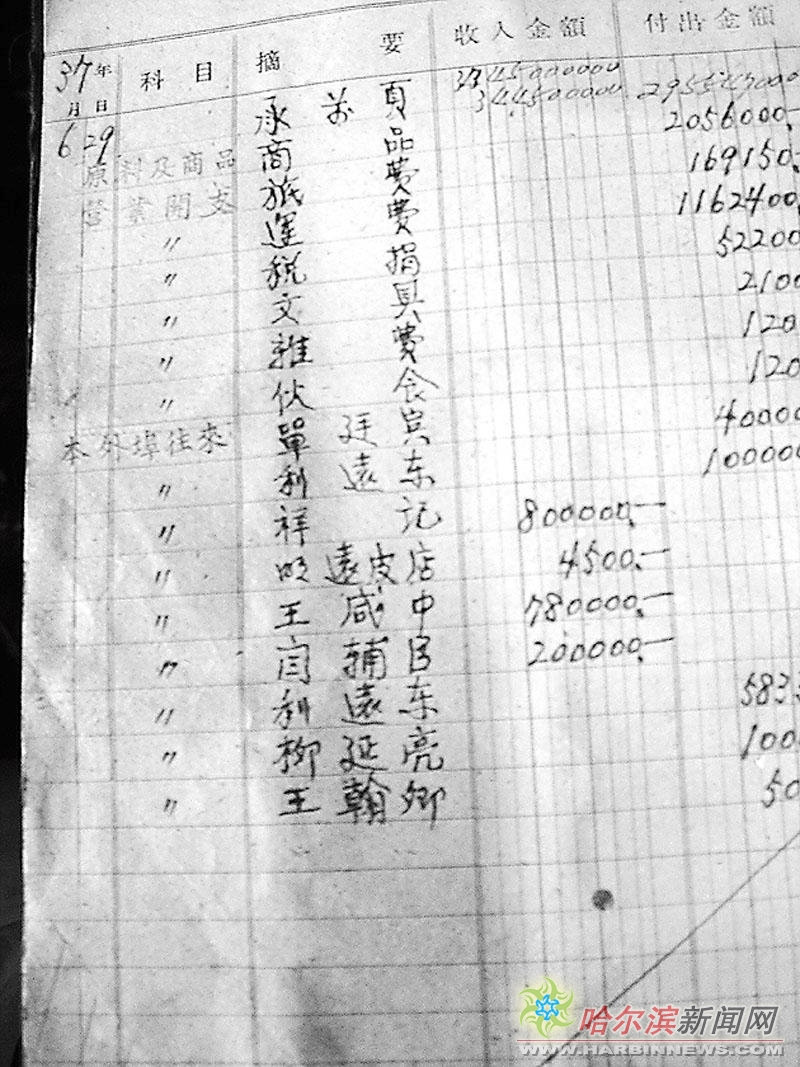 37年 科目 摘要 收入金額 付出金額
月 日
6 29 承前頁
原料及商品 商品 2056000.-
營業開支 旅費 169150.-
〃 運費 1162400.
〃 税捐 52200
〃 文具 2100
〃 雜費 120
〃 伙食 120
本外埠往來 單廷宾 40000
〃 利遠东 100000
〃 祥記 800000.-
〃 明遠皮店 4500.-
〃 王咸中 780000.-
〃 輔臣 200000.-
〃 利遠东 5833
〃 柳延亮 100
〃 王翰卿 50
哈尔滨新闻网
WWW.HARBINNEWS.COM